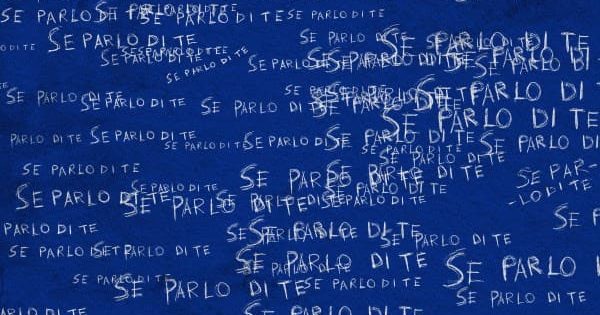 SE PARLO DI TE
SE PARLO DI TE
SE PARLO DI TE
SE PARLO DI TE
SE PARLO DI TE
SE PARLO DI TE
SE PARLO DI TE
O DI TE
SE PARLO DI TE
SE PARLO DI TE
SE PARLO DI TE
SE PARLO DI TE
SE PARLO DI TE
SE PARLO DI TE
SE PARLO DI TE
SE PARLO DI TE
SE PARLO DI TE
SE PARLO DI TE
PARLO DI TE
SE PARLO DI TE
SE PARLO DI TE
SE PARLO DI TE
SE PARLO DI TE
SE PARLO DI TE
SE PARLO DI TE
SE PARLO DI TE
SE PARLO DI TE
SE PARLO DI TE
SE PAR-
-LO DI TE
SE PARLO DI TE
SE PARLO DI TE
SE PARLO DI TE
SE PARLO DI TE
SE P
PARLO DI TE
SE PARLO DI TE
SE PARLO DI TE
SE PARLO DI TE
SE PARLO DI TE
SE PARLO DI TE
SE PARLO DI TE
SE PARLO
SE PARLO DI TE
SE PARLO DI TE
SE PARLO DI TE
SE PARLO DI TE